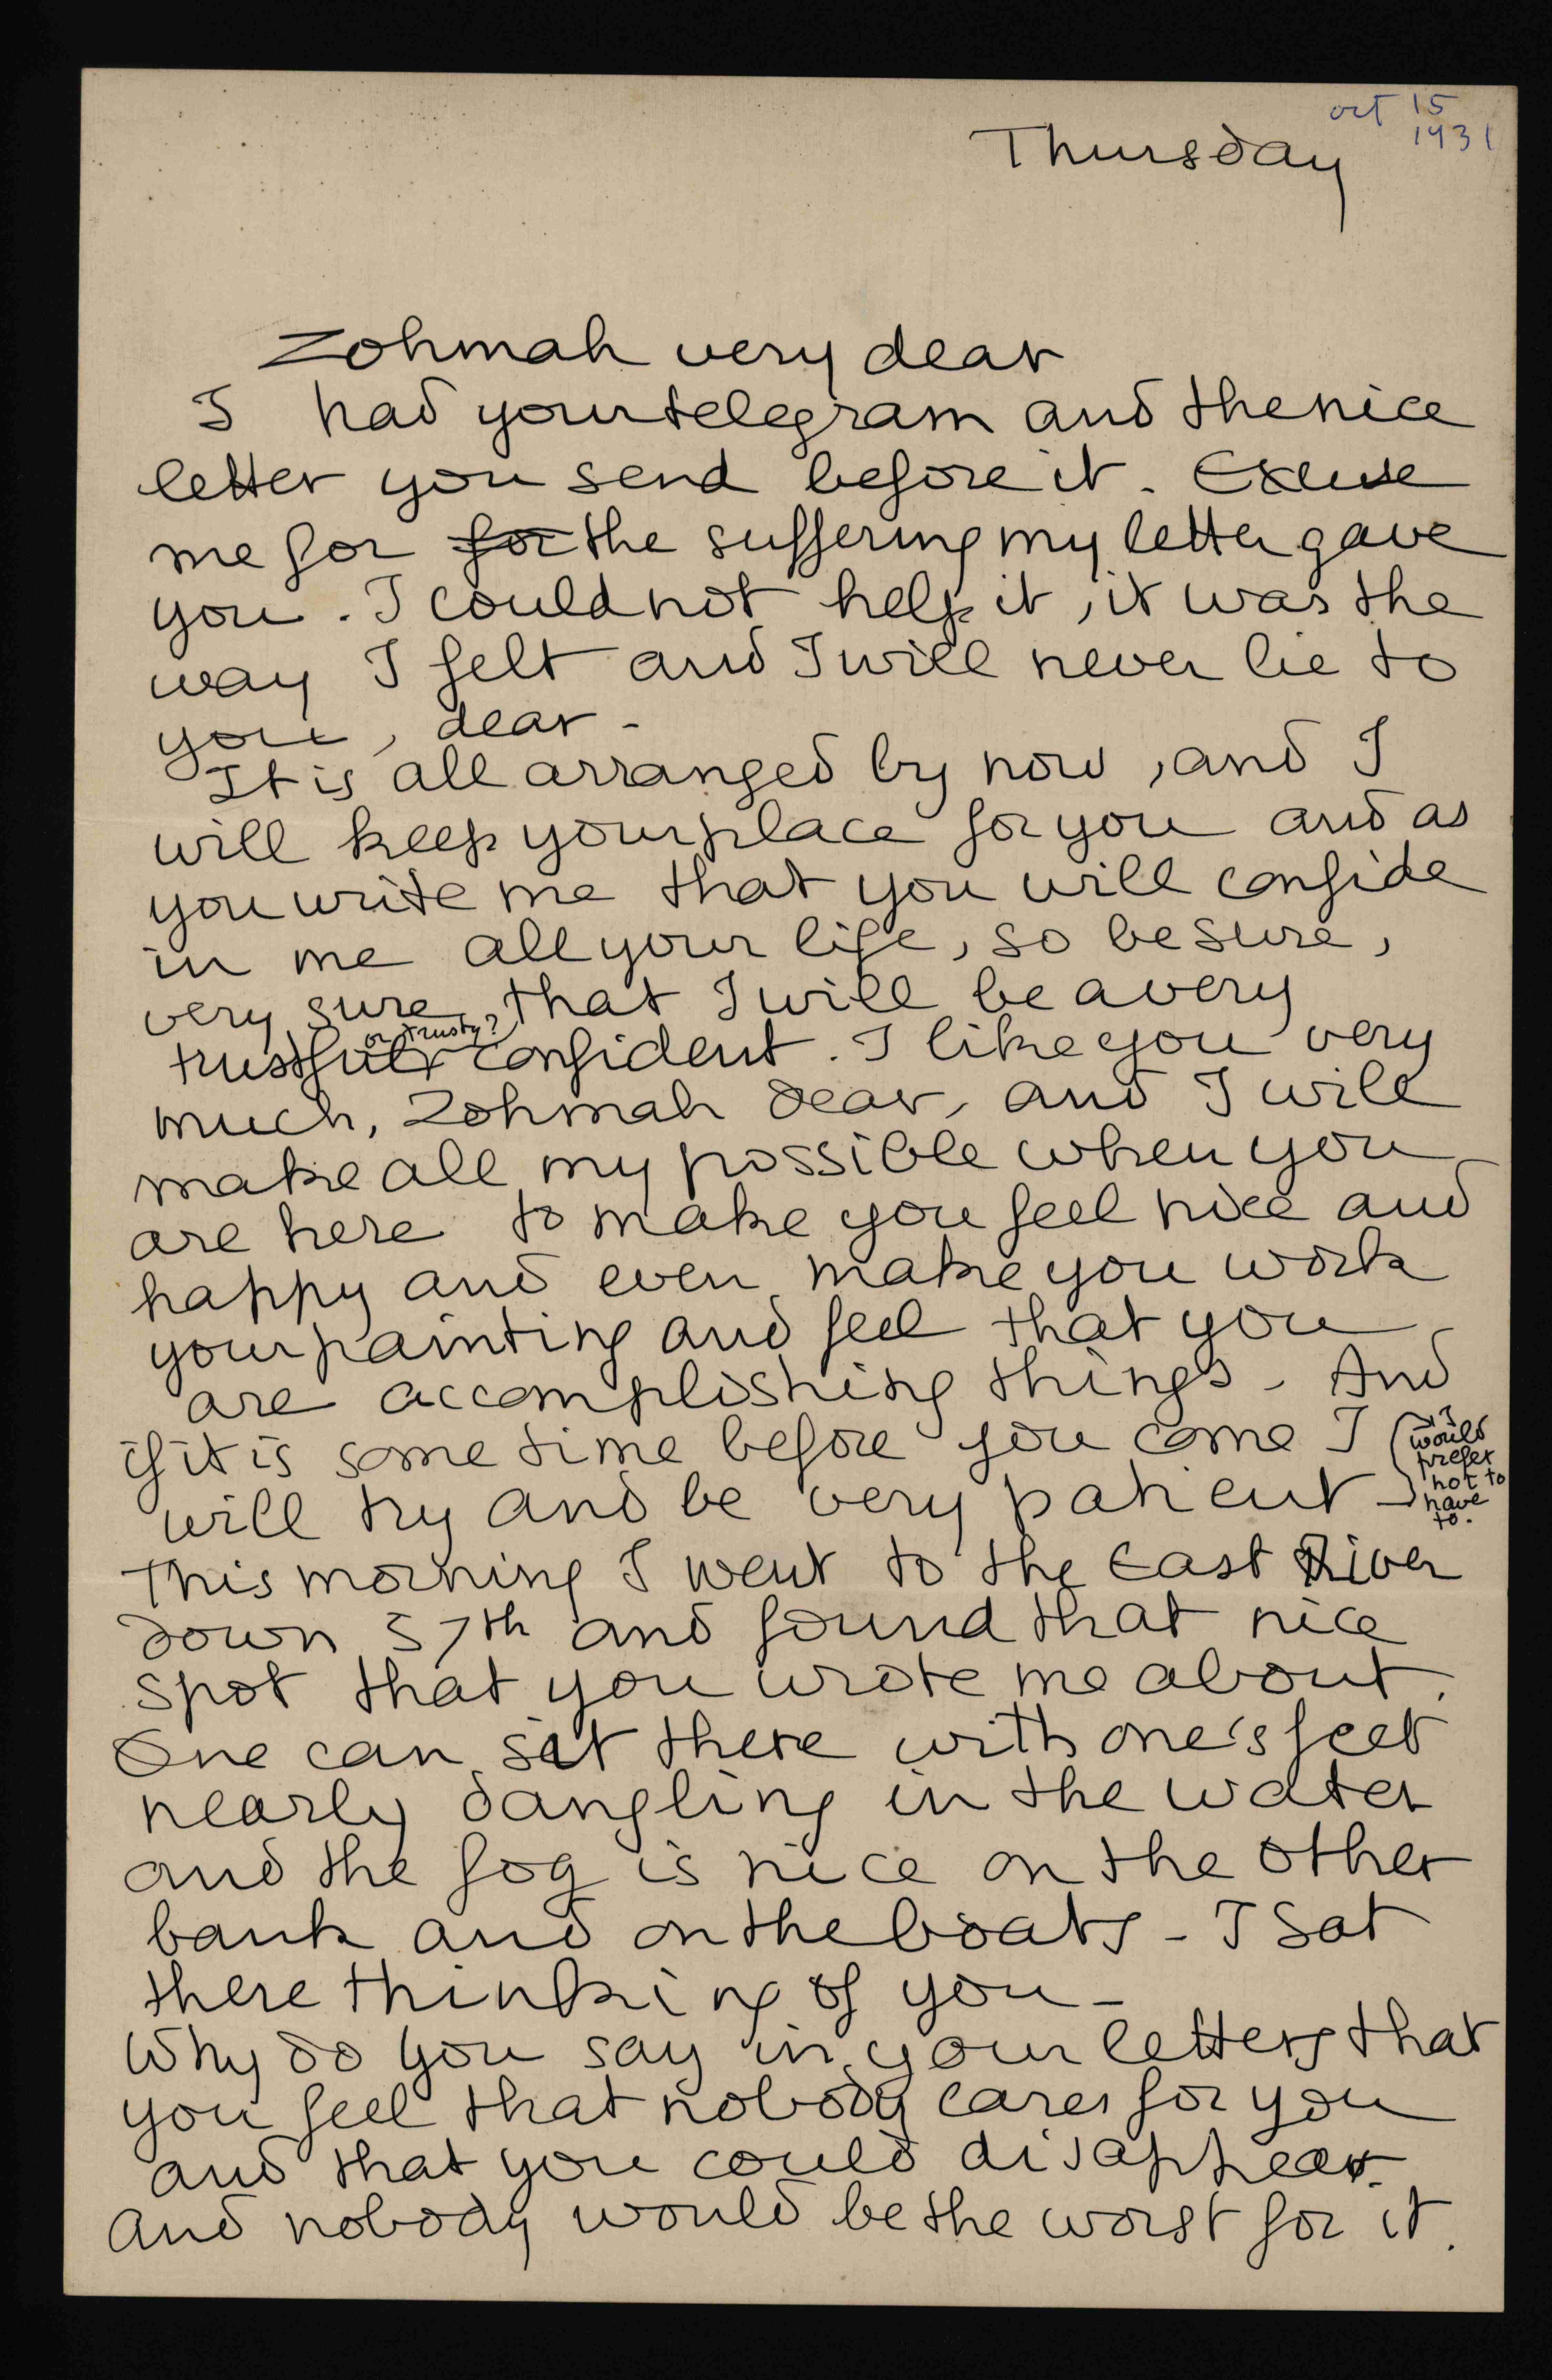 oct 15
1931
Thursday
Zohmah very dear
I had your telegram and the nice
letter you send before it. Excuse
me for for the suffering my letter gave
you. I could not help it, it was the
way I felt and I will never lie to
you, dear -
It is all arranged by now, and I
will keep your place for you and as
you write me that you will confide
in me all your life, so be sure,
very sure, that I will be a very
or trusty?
trustful confident. I like you very
much, Zohmah dear, and I will
make all my possible when you
are here to make you feel nice and
happy and even make you work
your painting and feel that you
are accomplishing things - And
if it is some time before you come I
will try and be very patient -
(I would
prefer
not to
have
to.
This morning I went to the East River
down 57th and found that nice
spot that you wrote me about.
One can sit there with one's feet
nearly dangling in the water
and the fog is nice on the other
bank and on the boats - I sat
there thinking of you -
Why do you say in your letters that
you feel that nobody cares for you
and that you could disappear
and nobody would be the worst for it.